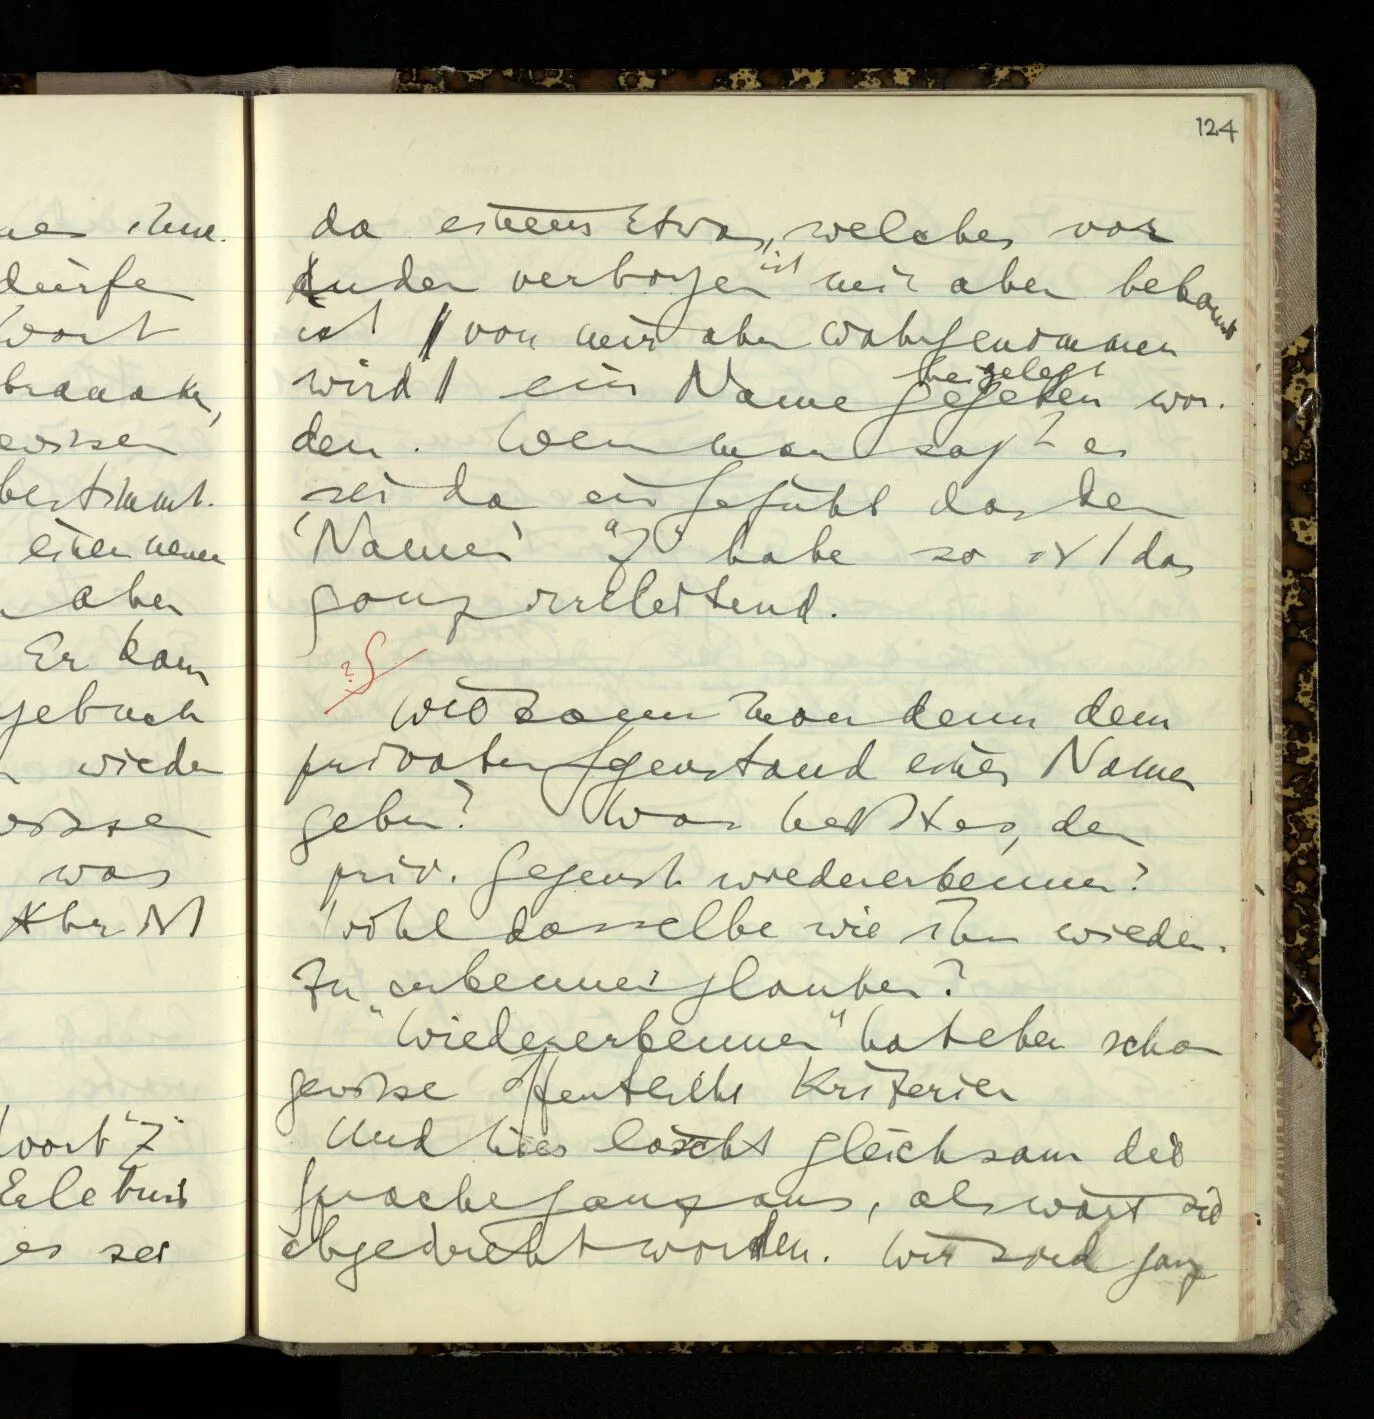 124
da einem Etwas, welches vor
Andern verborgen ist mir aber bekannt
ist // von mir aber wahrgenommen
wird // ein Name gegeben beigelegt wor-
den. Wenn man sagt es
sei da ein Gefühl das den
'Namen' "Z" habe so ist das
ganz irreleitend.
?S
Wie kann man denn dem
privaten Gegenstand einen Namen
geben? Was heißt es, den
priv. Gegenst. wiedererkennen?
Wohl dasselbe wie ihn wieder-
zu erkennen glauben?
"Wiedererkennen" hat eben schon
gewisse öffentliche Kriterien
Und hier löscht gleichsam die
Sprache ganz aus, als wäre sie
abgedreht worden. Wir sind ganz
ihm.
dürfe
Wort
brauche,
gewissen
bestimmt.
einen neuen
aber
Er kann
gebuch
wieder
wissen
was
Aber ist
Wort "Z"
Erlebnis
es sei